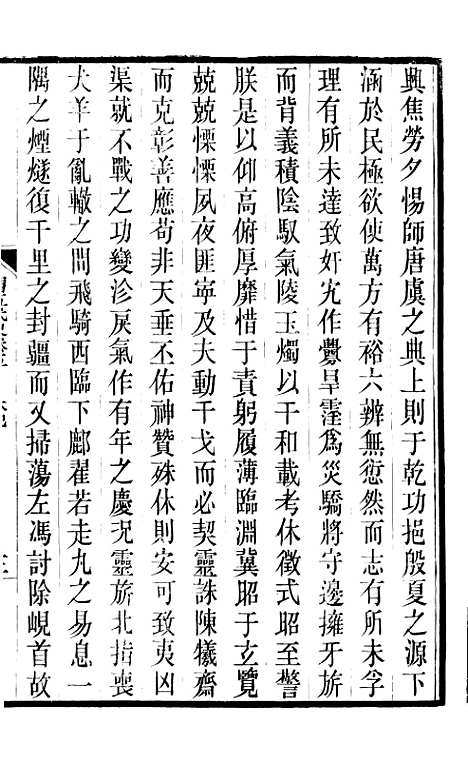 興焦勞夕惕師唐虞之典上則于乾功挹殷夏之源下
涵於民極欲使萬方有裕六辨無愆然而志有所未孚
理有所未達致奸宄作釁旱霪爲災驕將守邊擁牙旂
而背義積陰馭氣陵玉燭以干和載考休徵式昭至警
朕是以仰高俯厚靡惜于責躬履薄臨淵冀昭于玄覽
兢兢慄慄夙夜匪寧及夫動干戈而必契靈誅陳犧齋
而克彰善應苟非天垂丕佑神贊殊休則安可致夷凶
渠就不戰之功變沴戾氣作有年之慶況靈旂北指喪
犬羊于亂轍之間飛騎西臨下鄜翟若走丸之易息一
隅之煙燧復千里之封疆而又掃蕩左馮討除峴首故